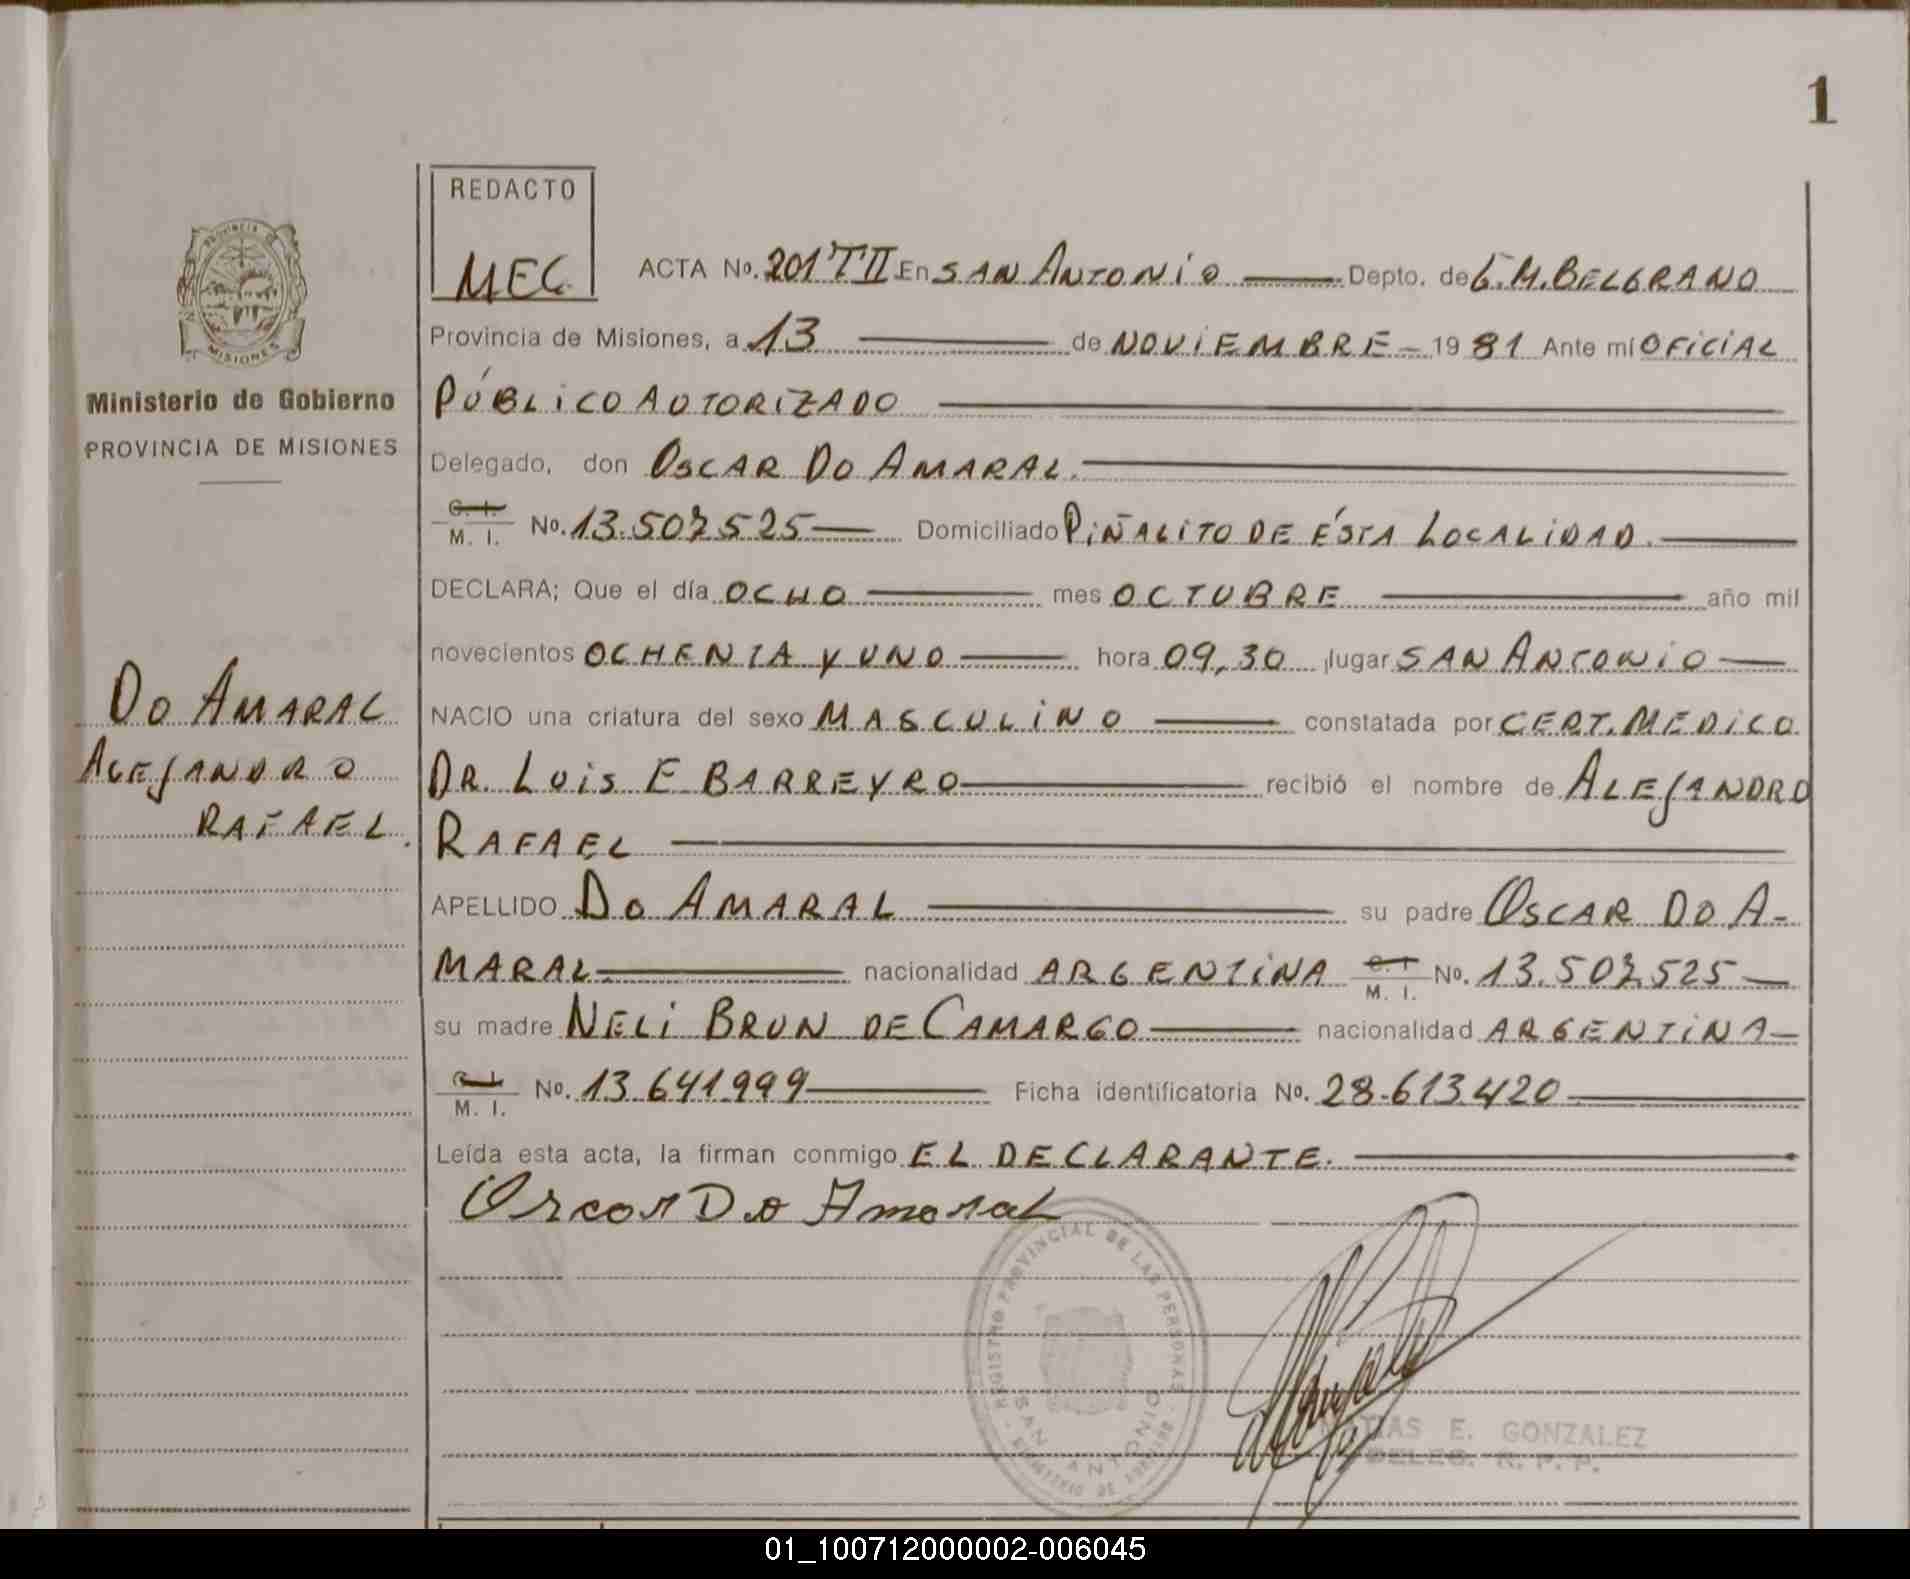 1
REDACTO
MEG.
ACTA No. 201 T II En SAN ANTONIO Depto. de G. M. BELGRANO
Provincia de Misiones, a 13 de NOVIEMBRE - 1981 Ante mí OFICIAL
PÚBLICO AUTORIZADO
Delegado, don OSCAR DO AMARAL.
C. I.
M. I. No. 13.507.525 Domiciliado PIÑALITO DE ÉSTA LOCALIDAD.
DECLARA; Que el día OCHO mes OCTUBRE año mil
novecientos OCHENTA Y UNO hora 09,30 lugar SAN ANTONIO
NACIO una criatura del sexo MASCULINO constatada por CERT. MEDICO
DR. LUIS E BARREYRO recibió el nombre de ALEJANDRO
RAFAEL
APELLIDO DO AMARAL su padre OSCAR DO A-
MARAL nacionalidad ARGENTINA C. I.
M. I. No. 13.507.525
su madre NELI BRUN DE CAMARGO nacionalidad ARGENTINA
C. I.
M. I. No. 13.641.999 Ficha identificatoria No. 28.613.420
Leída esta acta, la firman conmigo EL DECLARANTE.
Oscar Do Amaral
REGISTRO PROVINCIAL DE LAS PERSONAS
SAN ANTONIO
E. GONZALEZ
DELEG. R. P. P.
PROVINCIA DE
MISIONES
Ministerio de Gobierno
PROVINCIA DE MISIONES
DO AMARAL
ALEJANDRO
RAFAEL.
01_100712000002-006045